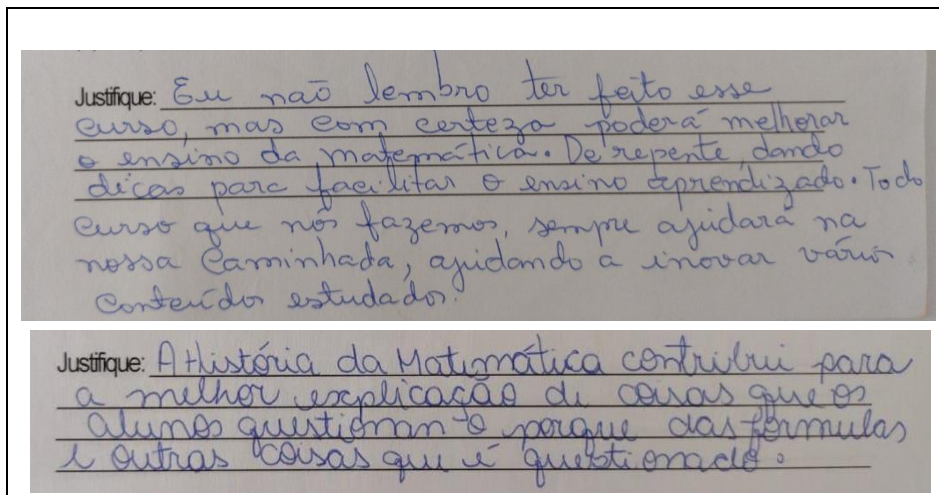 Justifique: Eu não lembro ter feito esse
curso, mas com certeza poderá melhorar
o ensino da matemática. De repente, dando
dicas para facilitar o ensino aprendizado. Todo
curso que nós fazemos, sempre ajudará na
nossa Caminhada, ajudando a inovar vários
conteúdos estudados.
Justifique: A História da Matemática contribui para
a melhor explicação de coisas que os
alunos questionam o porque das formulas
e outras coisas que é questionado.